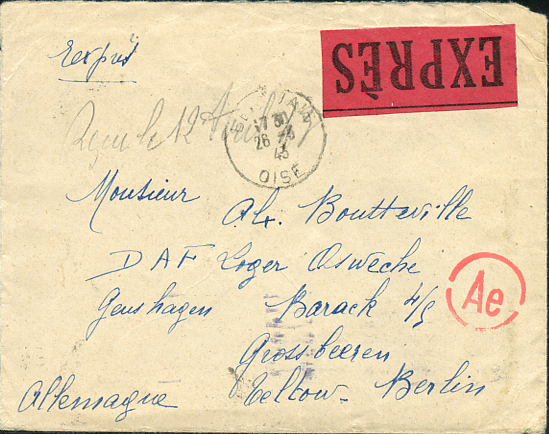 Exprès
EXPRÈS
Reçu le 12 Avril
17 30
26 -3
43
OISE
Monsieur
Al. Boutteville
DAF Lager Osweche
Genshagen Barack 4/9
Ae
Grossbeeren
Teltow - Berlin
Allemagne